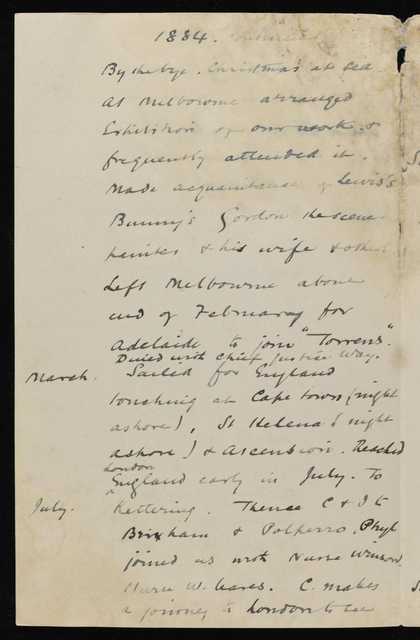 1884.
By the bye. Christmas at sea
At Melbourne arranged
Exhibition of our work &
frequently attended it.
Made acquaintance of Lewis's
Bunny's Gordon the scene
painter & his wife & others
Left Melbourne about
end of February for
Adelaide to join "Torrens".
Dined with Chief Justice Way.
March. Sailed for England
touching at Cape Town (night
ashore), St Helena (night
ashore) & Ascension. Reached
London
England early in July. To
July. Kettering. Thence C & I to
Brixham & Polperro. Phyl
joined us with Nurse
Nurse W. leaves. C. makes
a journey to London to see